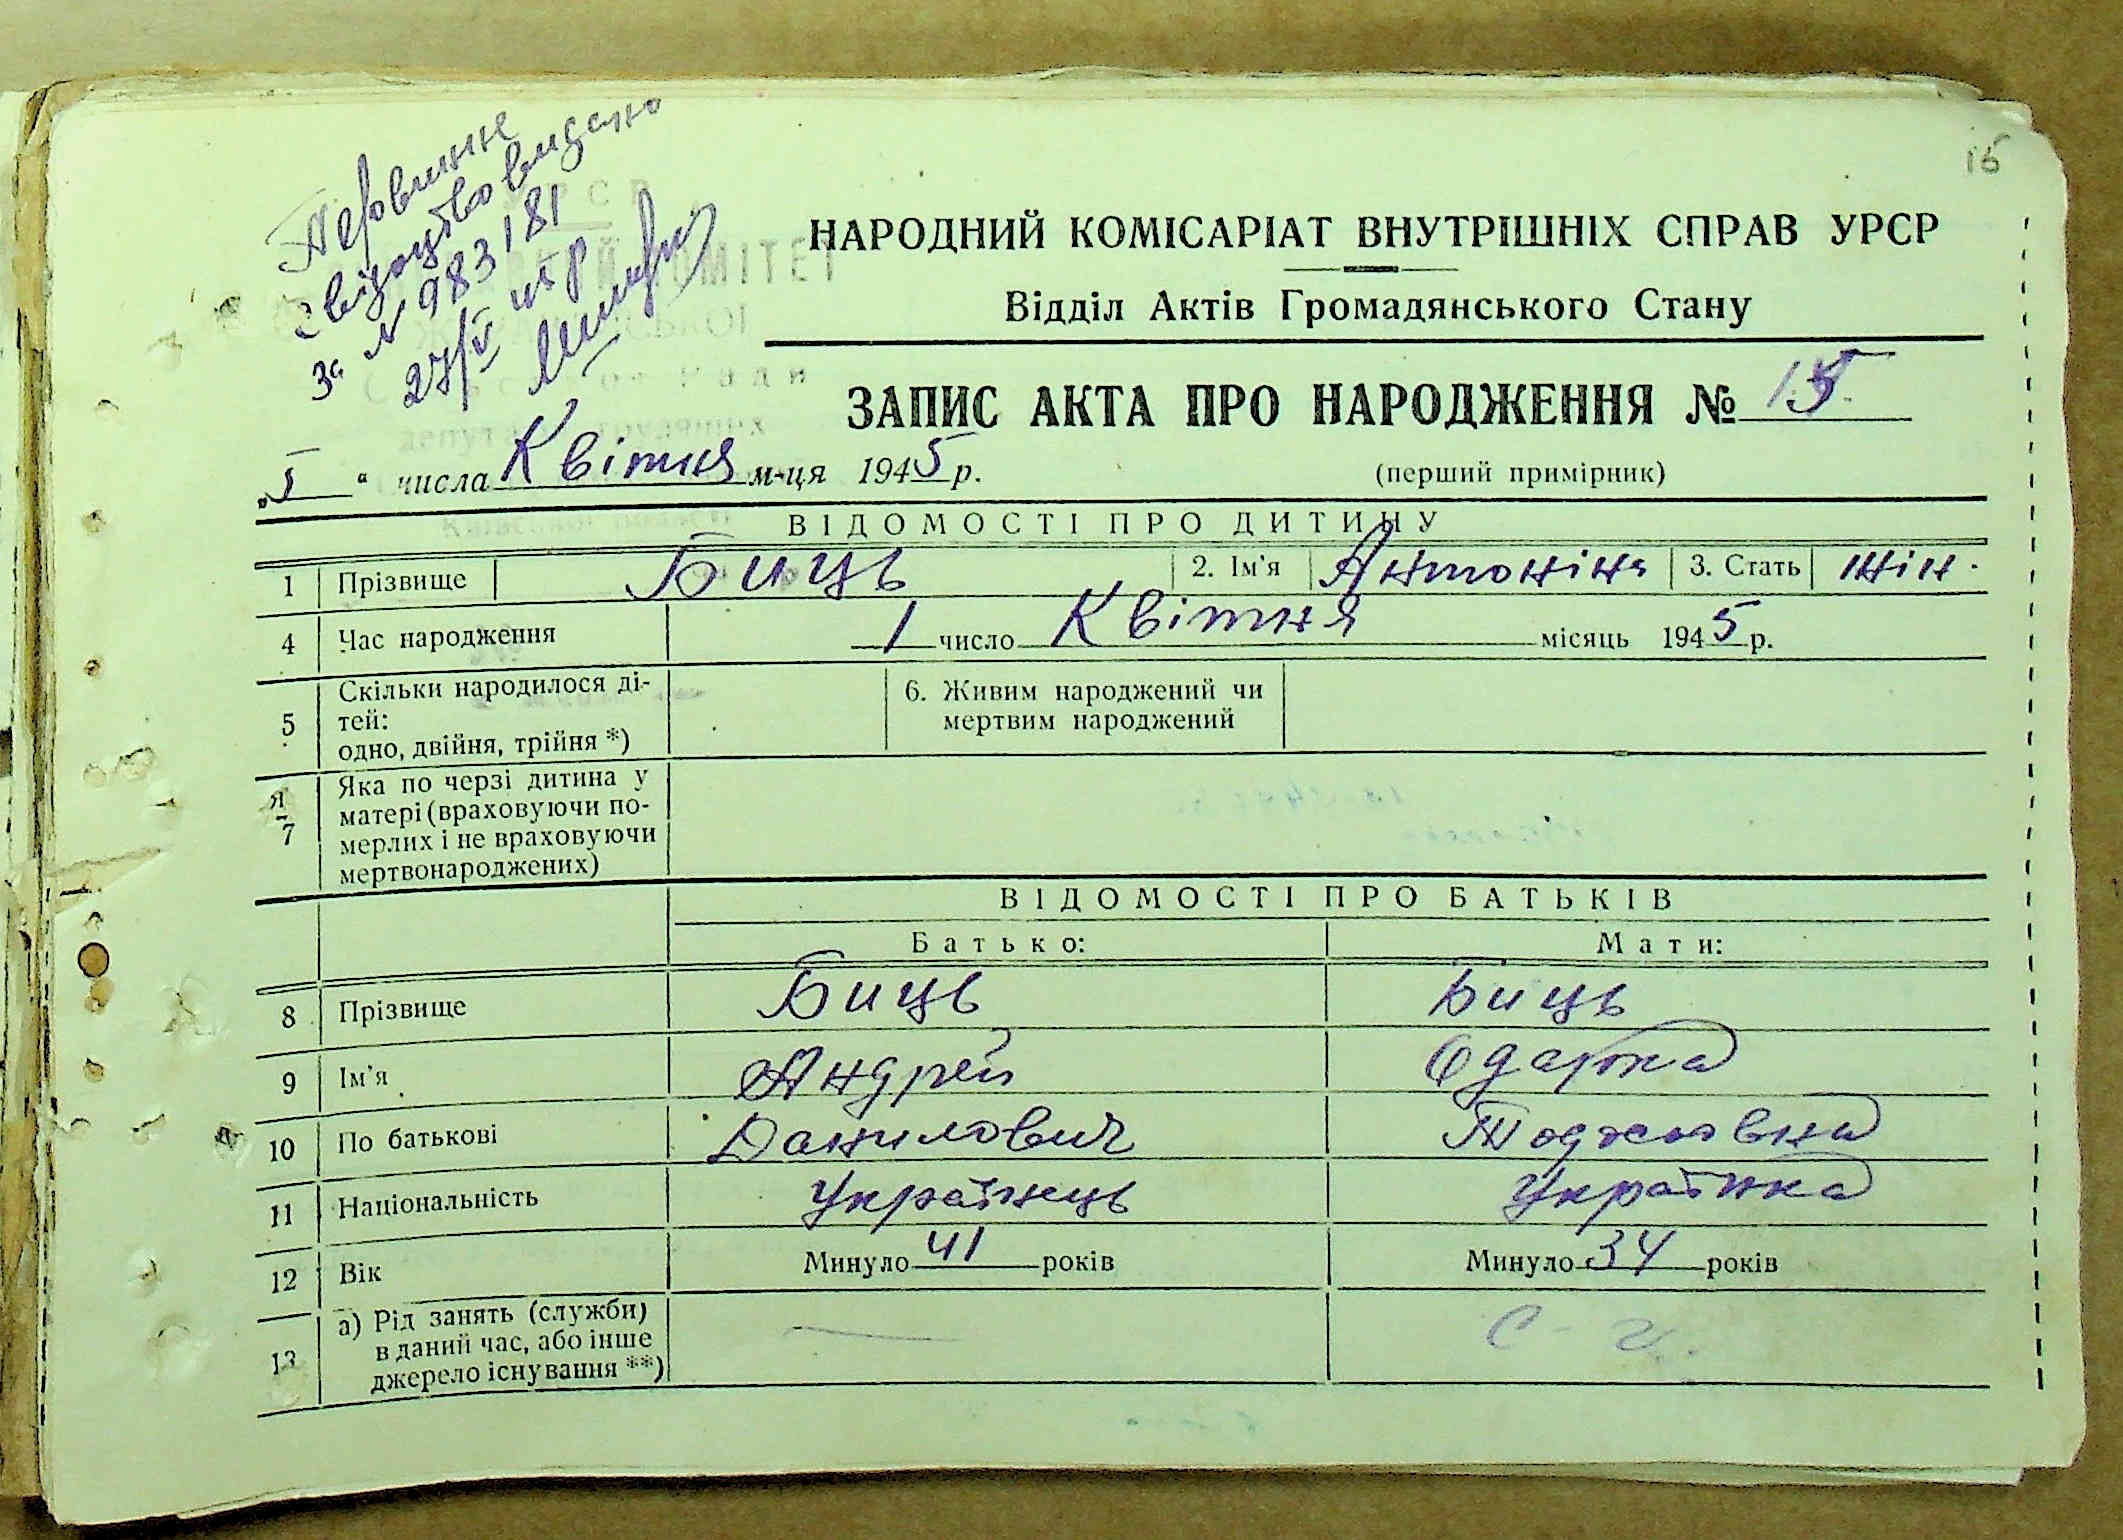 15
Первинне
свідоцтво видано
за № 983181
27/V 45 р
НАРОДНИЙ КОМІСАРІАТ ВНУТРІШНІХ СПРАВ УРСР
Відділ Актів Громадянського Стану
ЗАПИС АКТА ПРО НАРОДЖЕННЯ № 15
„I“ числа Квітня м-ця 1945 р.
(перший примірник)
ВІДОМОСТІ ПРО ДИТИНУ
1 Прізвище Биць 2. Ім'я Антоніна 3. Стать жін.
4 Час народження 1 число Квітня місяць 1945 р.
5 Скільки народилося ді-
тей:
одно, двійня, трійня *)
6. Живим народжений чи
мертвим народжений
7 Яка по черзі дитина у
матері (враховуючи по-
мерлих і не враховуючи
мертвонароджених)
ВІДОМОСТІ ПРО БАТЬКІВ
Батько: Мати:
8 Прізвище Биць Биць
9 Ім'я Андрей Одарка
10 По батькові Данилович
11 Національність Українець Українка
12 Вік Минуло 41 років Минуло 34 років
13 а) Рід занять (служби)
в даний час, або інше
джерело існування **)
— С-г.